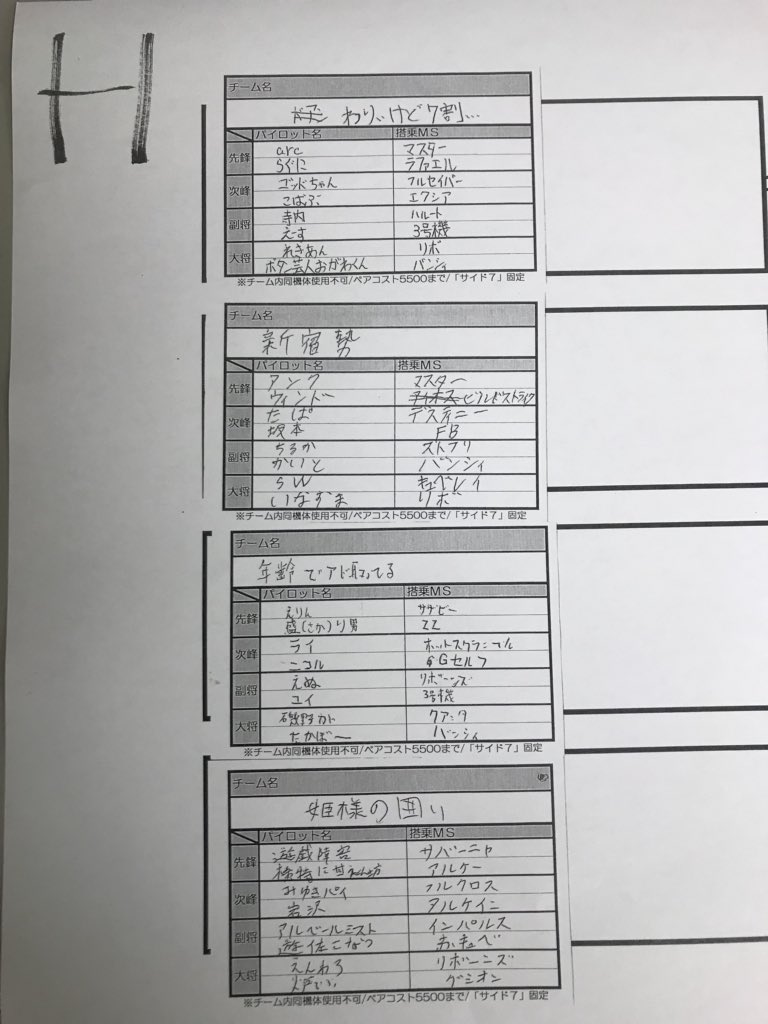 H
チーム名
わりぃけど7割...
パイロット名 搭乗MS
先鋒 arc マスター
らぐに ラファエル
次峰 ゴッドちゃん フルセイバー
こばぶ エクシア
副将 寺内 ハルート
えーす 3号機
大将 れきあん リボ
ボタン芸人おがわくん バンシィ
※チーム内同機体使用不可/ペアコスト5500まで/「サイド7」固定
チーム名
新宿勢
パイロット名 搭乗MS
先鋒 アンク マスター
ウィンドー ビルドストライク
次峰 たぱ デスティニー
坂本 FB
副将 ちるか ストフリ
かいと バンシィ
大将 SW キュベレイ
いなずま リボ
※チーム内同機体使用不可/ペアコスト5500まで/「サイド7」固定
チーム名
年齢でアド取ってる
パイロット名 搭乗MS
先鋒 えりん サザビー
盛(さか)り男 ZZ
次峰 ライ ホットスクランブル
ニコル Gセルフ
副将 えぬ リボーンズ
ユイ 3号機
大将 磯野カド クアンタ
たかぼー バンシィ
※チーム内同機体使用不可/ペアコスト5500まで/「サイド7」固定
チーム名
姫様の囲い
パイロット名 搭乗MS
先鋒 遊戯障害 サバーニャ
アルケー
次峰 みゆきパイ フルクロス
岩沢 アルケイン
副将 アルベールミスト インパルス
遊佐こなつ 赤キュベ
大将 えんわろ リボーンズ
グシオン
※チーム内同機体使用不可/ペアコスト5500まで/「サイド7」固定